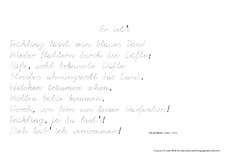 Er ist's
Frühling lässt sein blaues Band
Wieder flattern durch die Lüfte;
Süße, wohl bekannte Düfte
Streifen ahnungsvoll das Land.
Veilchen träumen schon,
Wollen balde kommen.
Horch, von fern ein leiser Harfenton!
Frühling, ja du bist's!
Dich hab' ich vernommen!
Eduard Mörike